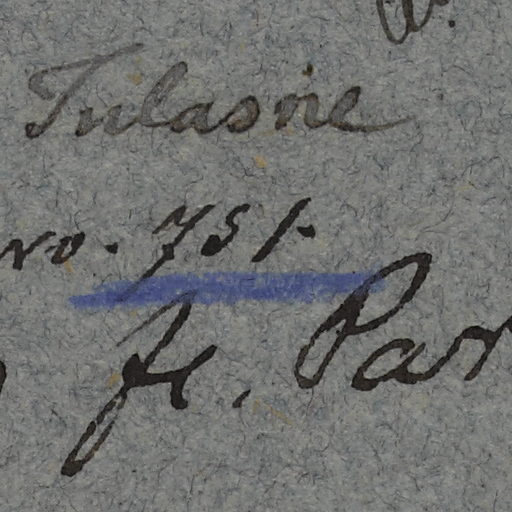 Tulasne
no. 751.
fl. Par